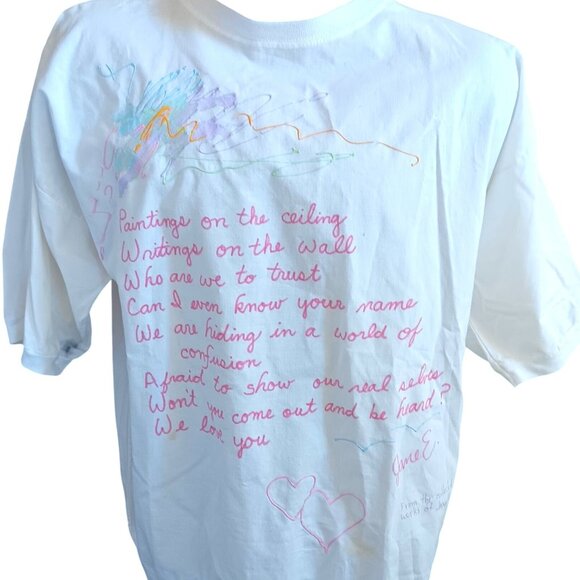 Paintings on the ceiling
Writings on the wall
Who are we to trust
Can I even know your name
We are hiding in a world of
confusion
Afraid to show our real selves
Won't you come out and be heard?
We love you
June E.
From the
works of